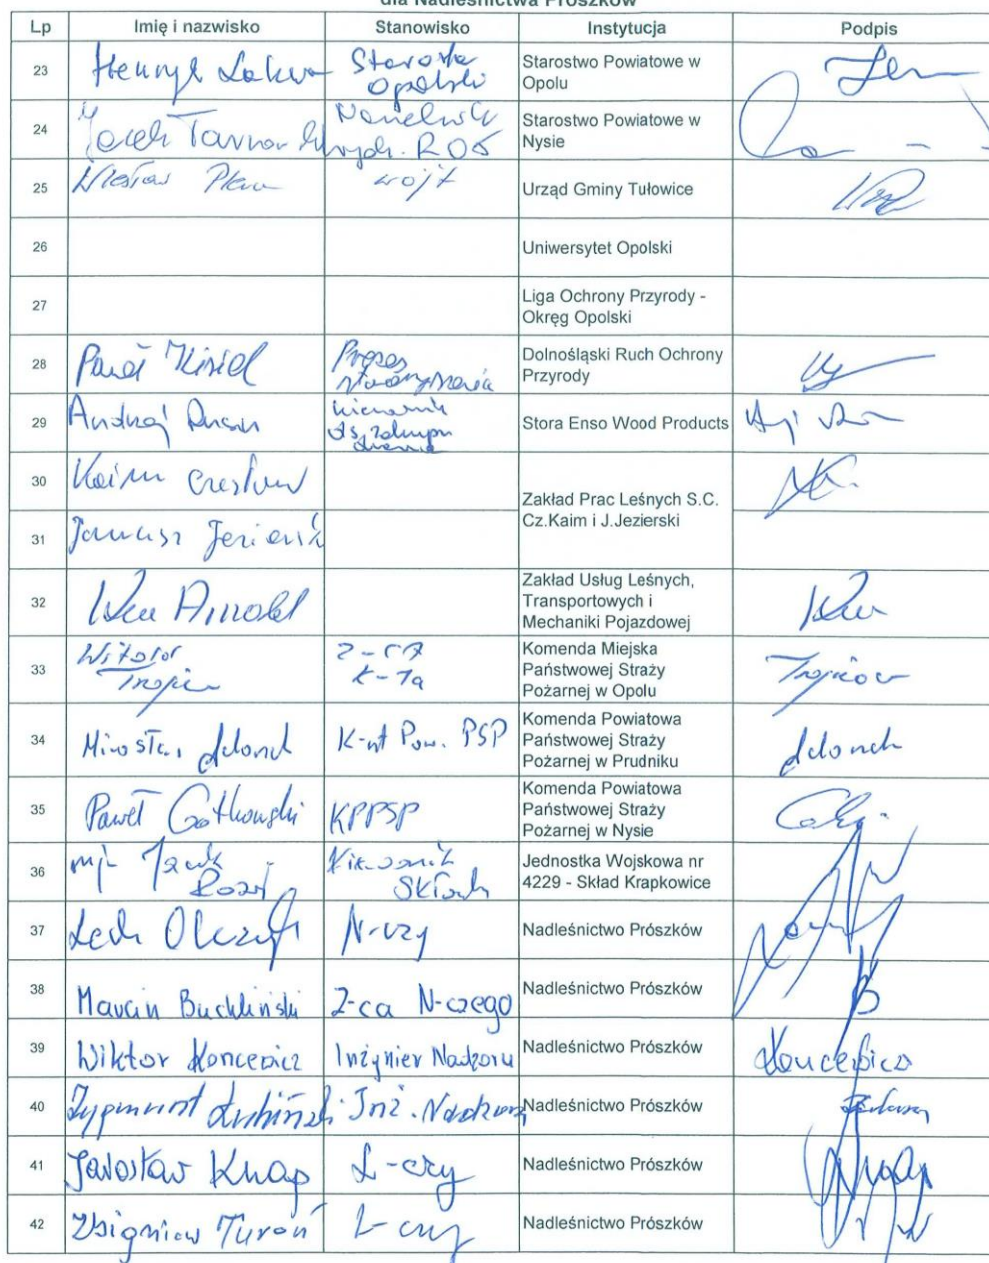 dla Nadleśnictwa Prószków
Lp Imię i nazwisko Stanowisko Instytucja Podpis
23 Henryk Lakwa Starosta Opolski Starostwo Powiatowe w
Opolu
24 Jacek Tarnowski Naczelnik Wydz. ROŚ Starostwo Powiatowe w
Nysie
25 Wiesław Plewa wójt Urząd Gminy Tułowice
26 Uniwersytet Opolski
27 Liga Ochrony Przyrody -
Okręg Opolski
28 Paweł Kisiel Prezes Stowarzyszenia Dolnośląski Ruch Ochrony
Przyrody
29 Andrzej kierownik ds. zakupu drewna Stora Enso Wood Products
30 Kaim Czesław
Zakład Prac Leśnych S.C.
Cz.Kaim i J.Jezierski
31 Janusz Jezierski
32 Arnold Zakład Usług Leśnych,
Transportowych i
Mechaniki Pojazdowej
33 Witold Z-CA K-Ta Komenda Miejska
Państwowej Straży
Pożarnej w Opolu
34 Mirosław K-nt Pow. PSP Komenda Powiatowa
Państwowej Straży
Pożarnej w Prudniku
35 Paweł Gotkowski KPPSP Komenda Powiatowa
Państwowej Straży
Pożarnej w Nysie
36 mjr Jacek Kierownik Składu Jednostka Wojskowa nr
4229 - Skład Krapkowice
37 Lech Olczyk N-czy Nadleśnictwo Prószków
38 Marcin Buchliński Z-ca N-czego Nadleśnictwo Prószków
39 Wiktor Koncewicz Inżynier Nadzoru Nadleśnictwo Prószków Koncewicz
40 Zygmunt Łubiński Inż. Nadzoru Nadleśnictwo Prószków
41 Jarosław Knap L-czy Nadleśnictwo Prószków
42 Zbigniew Turoń L-czy Nadleśnictwo Prószków